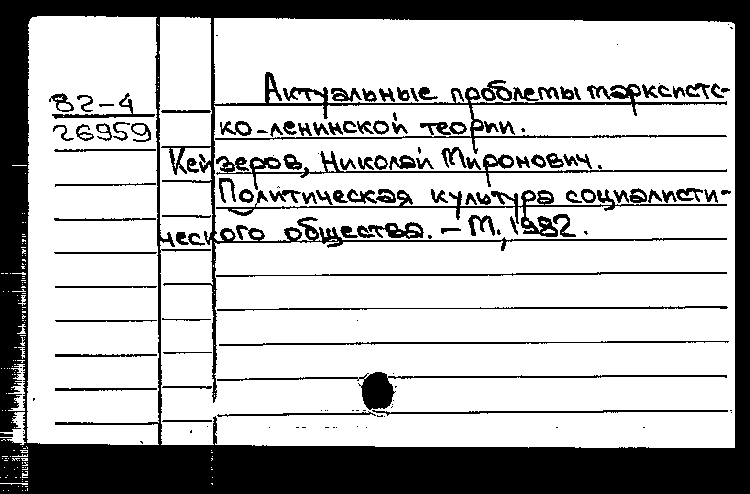 82-4
26959
Актуальные проблемы марксистс-
ко-ленинской теории.
Кейзеров, Николай Миронович.
Политическая культура социалисти-
ческого общества. – М., 1982.